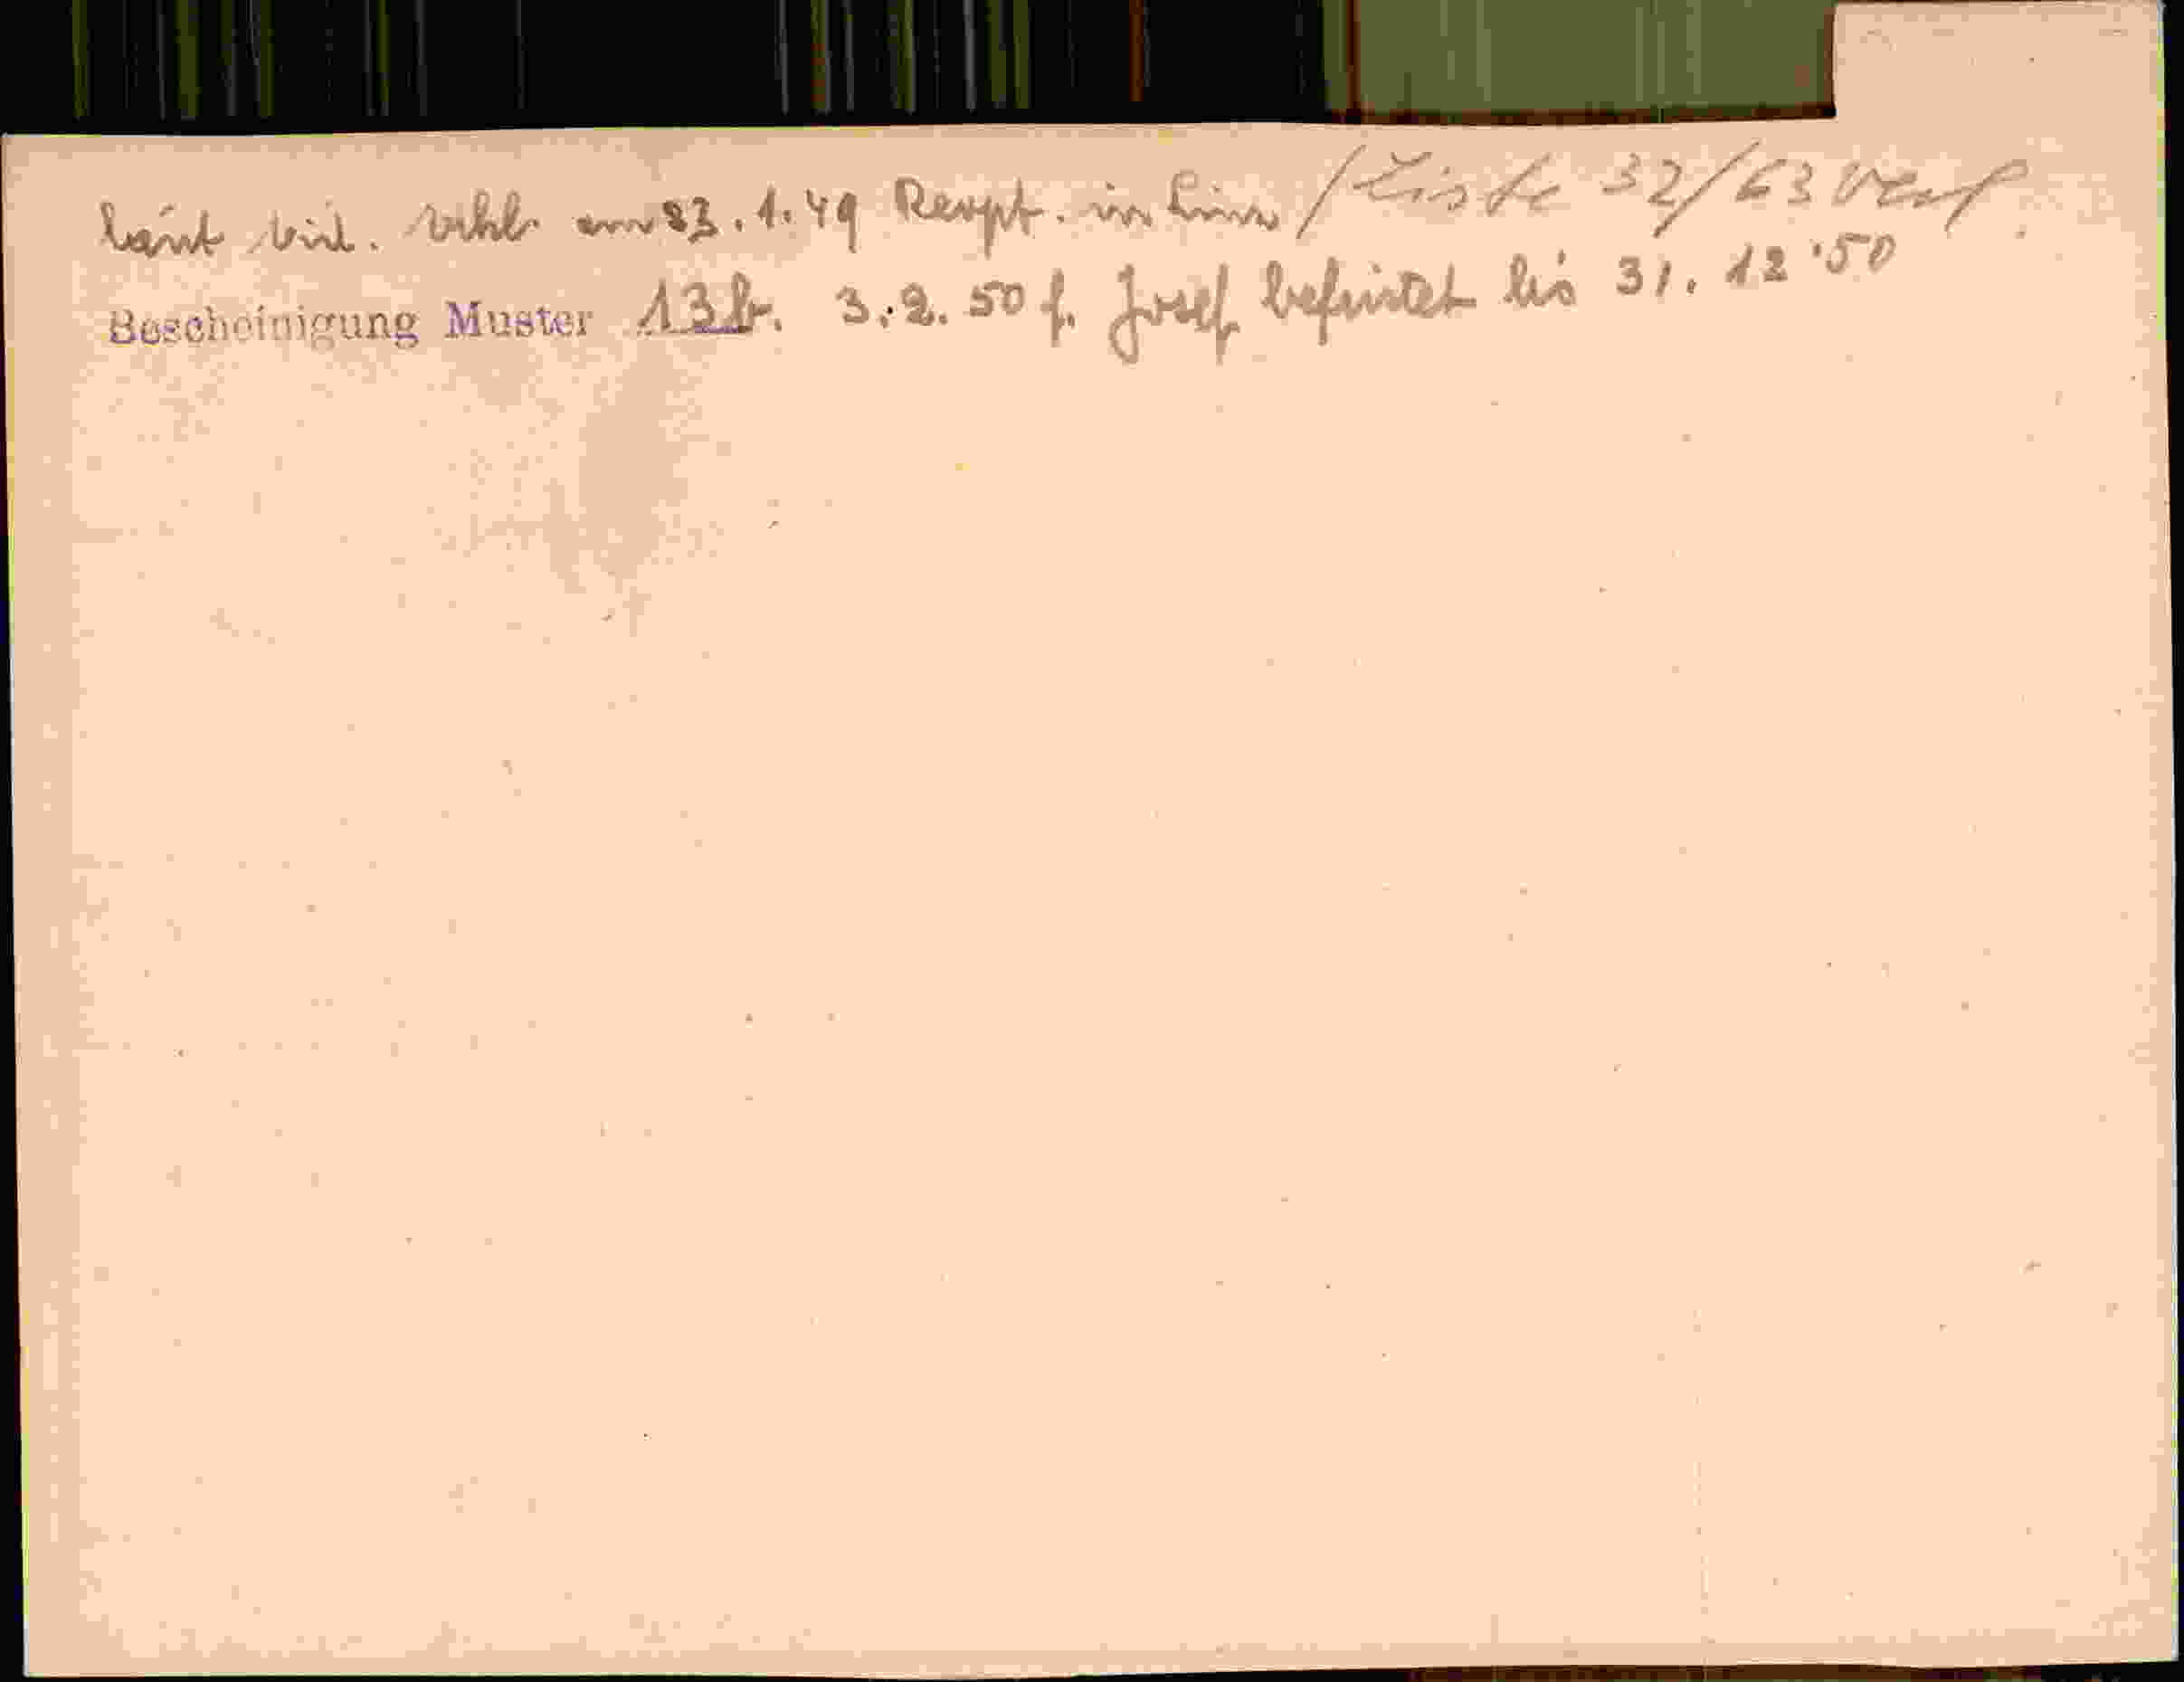 laut am 23.1.49 in Linz / Liste 32/63 Verf.
Bescheinigung Muster 13b. 3.2.50 f. Josef befristet bis 31.12.50